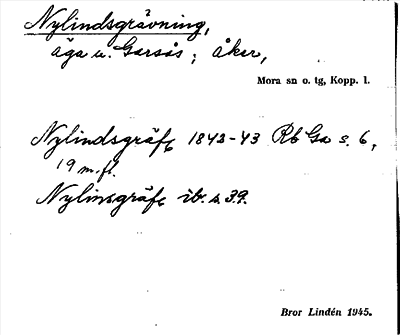 Nylindsgrävning,
äga u. Garsås; åker,
Mora sn o. tg, Kopp. l.
Nylindsgräfv 1842-43 Rb Ga s. 6,
19 m.fl.
Nylinsgräfv ib. s. 39.
Bror Lindén 1945.